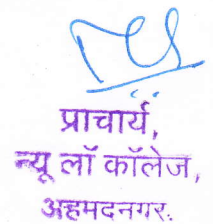 प्राचार्य,
न्यू लॉ कॉलेज,
अहमदनगर.